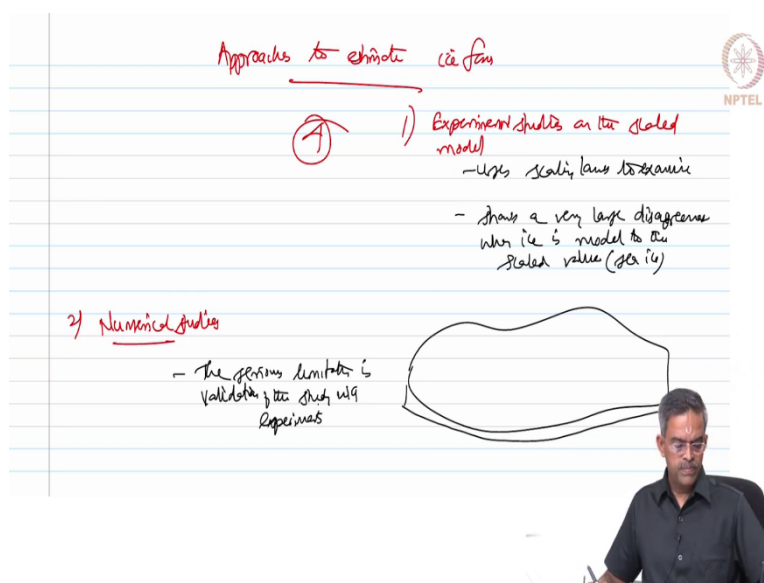 Approaches to estimate ice force
NPTEL
4
1) Experimental studies on the scaled
model
- uses scaling laws to examine
- shows a very large disagreement
when ice is model to the
scaled value (sea ice)
2) Numerical studies
- The serious limitation is
validation of the study with
experiments